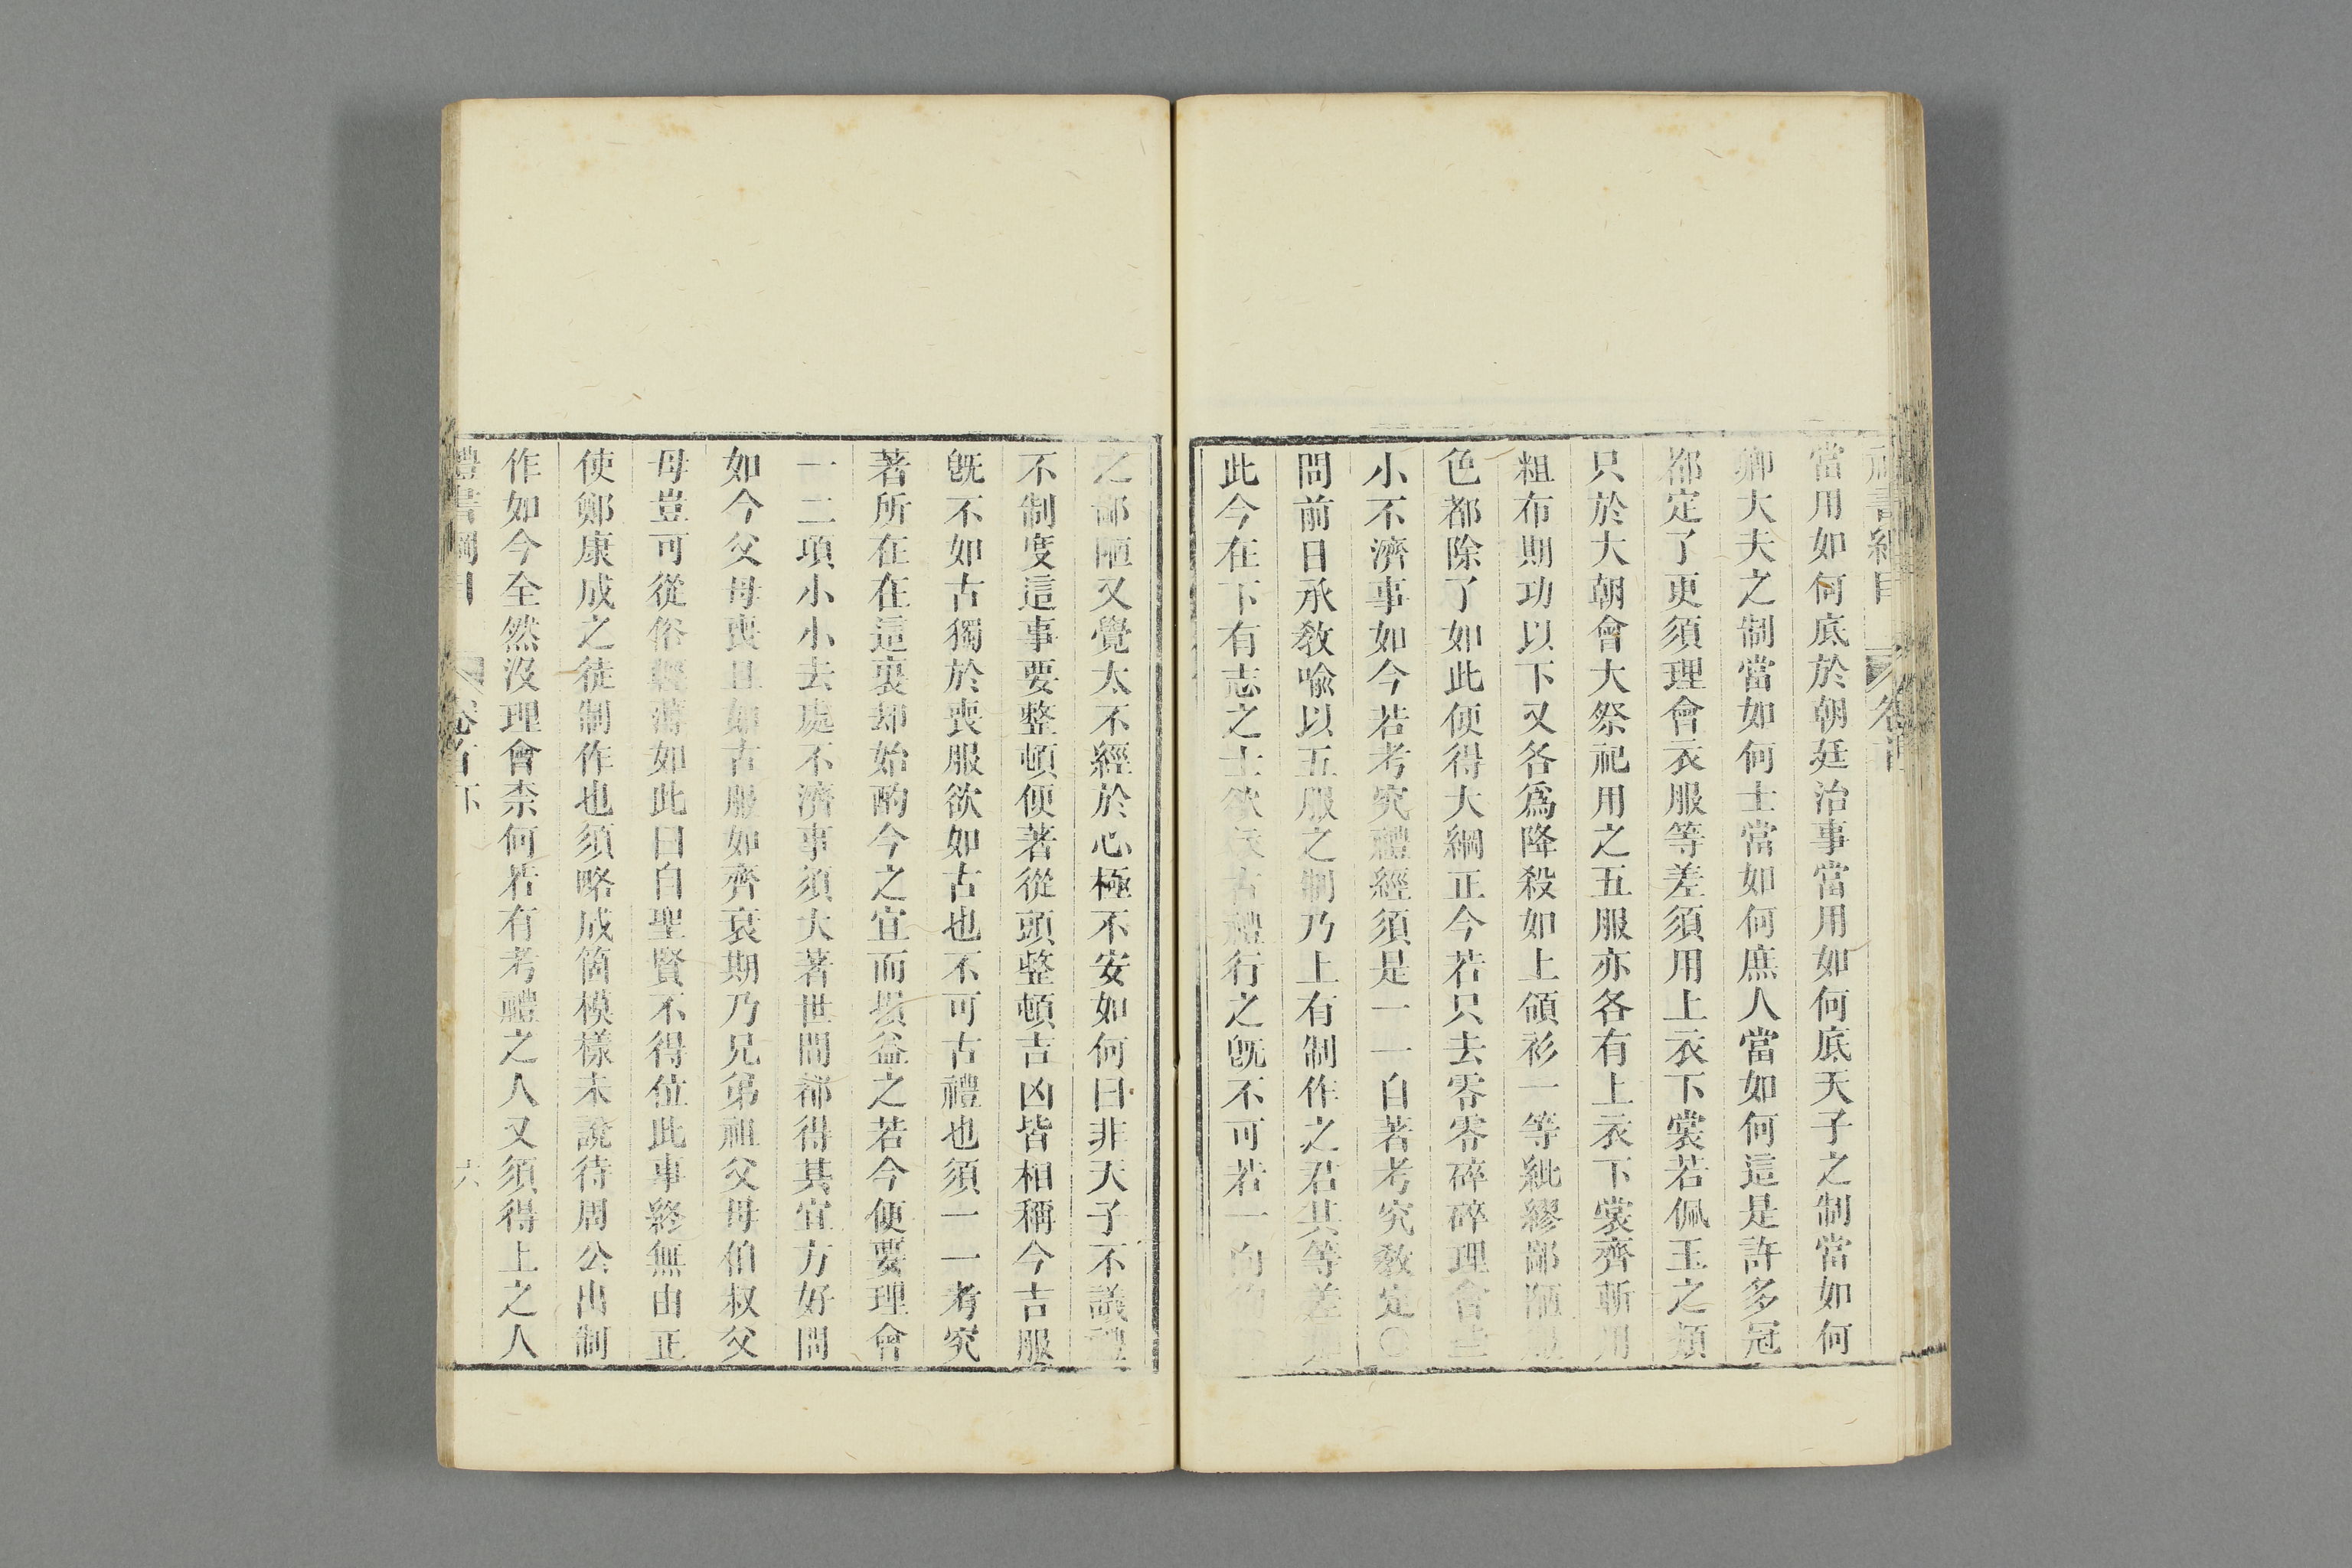 當用如何底於朝廷治事當用如何底天子之制當如何
卿大夫之制當如何士當如何庶人當如何這是許多冠
都定了更須理會衣服等差須用上衣下裳若佩玉之類
只於大朝會大祭祀用之五服亦各有上衣下裳齊斬用
粗布期功以下又各爲降殺如上領衫一等紕繆鄙陋
色都除了如此便得大綱正今若只去零零碎碎理會些
小不濟事如今若考究禮經須是一一自著考究敎定〇
問前日承敎喩以五服之制乃上有制作之君其等差
此今在下有志之士欲古禮行之旣不可若一向
之鄙陋又覺太不經於心極不安如何曰非天子不議禮
不制度這事要整頓便著從頭整頓吉凶皆相稱今吉服
旣不如古獨於喪服欲如古也不可古禮也須一一考究
著所在在這裏却始酌今之宜而損益之若今便要理會
一二項小小去處不濟事須大著世間都得其宜方好問
如今父母喪且如古服如齊衰期乃兄弟祖父母伯叔父
母豈可從俗輕薄如此曰自聖賢不得位此事終無由正
使鄭康成之徒制作也須略成箇模樣未說待周公出制
作如今全然沒理會柰何若有考禮之人又須得上之人
禮書綱目 卷首下 六